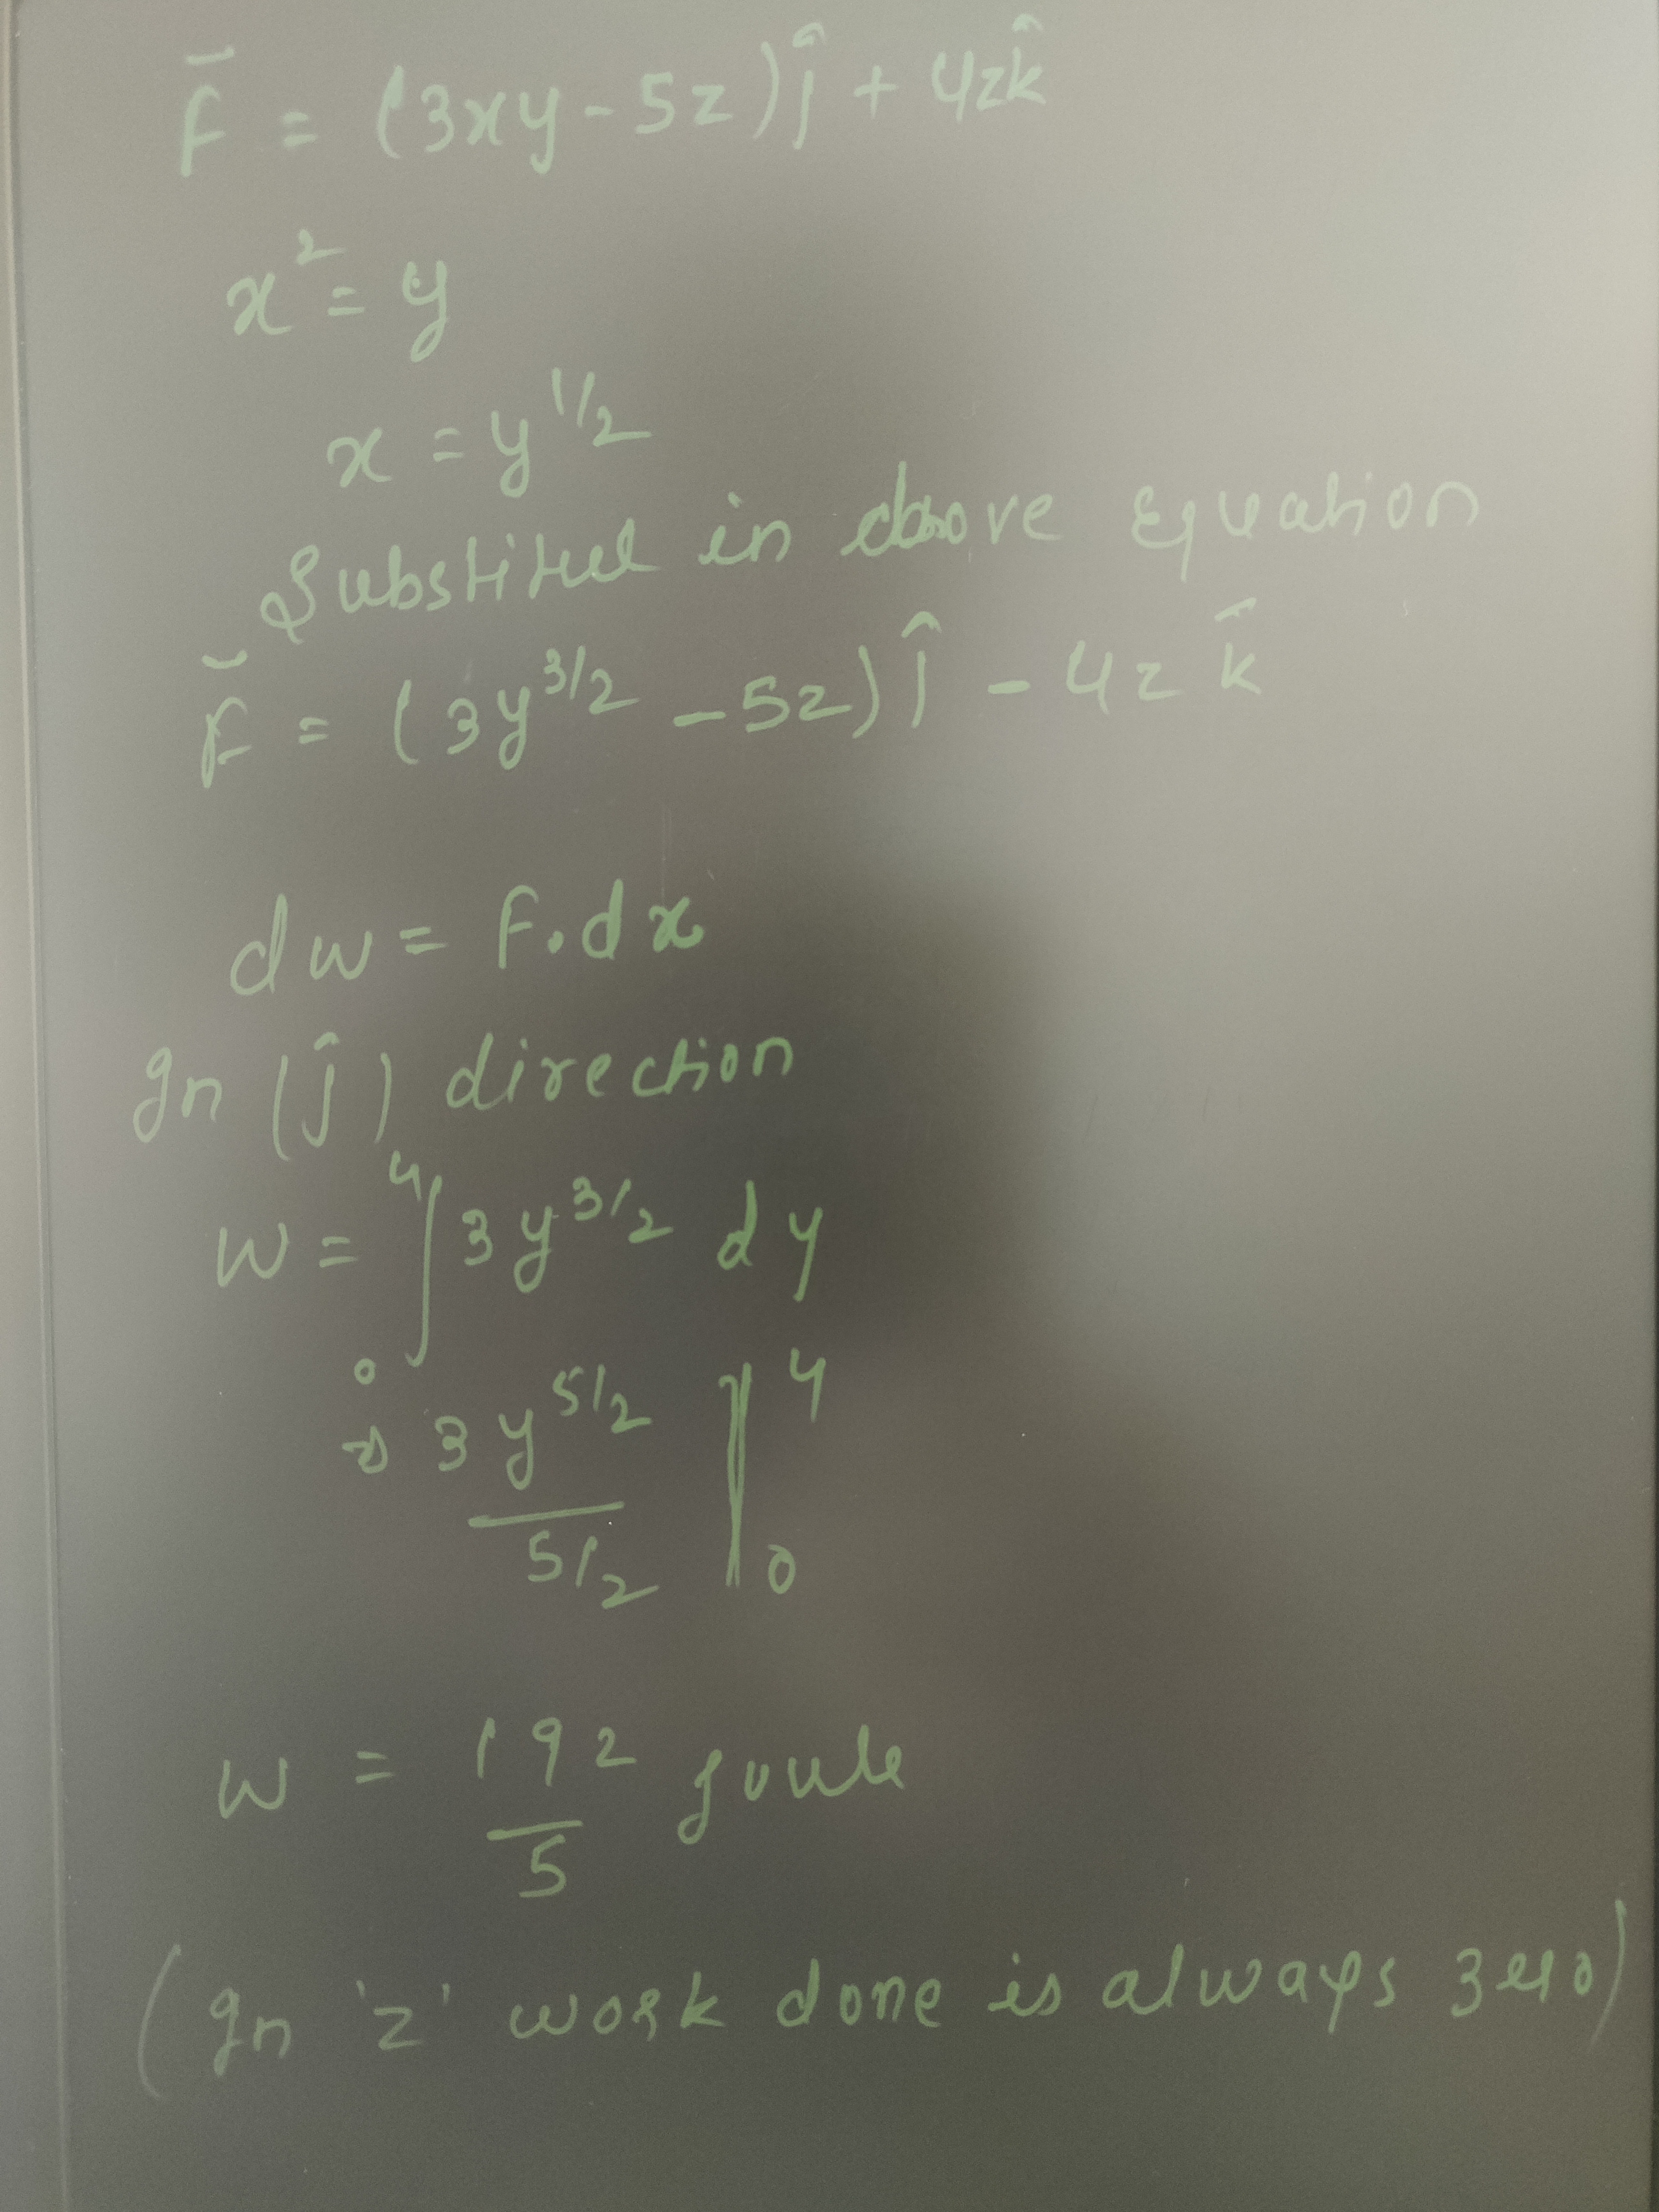 F̄ = (3xy - 5z)ĵ + 4zk̂
x² = y
x = y^1/2
Substitued in above Equation
F̄ = (3y^3/2 - 5z)ĵ - 4z k̂
dw = F.dx
In (ĵ) direction
W = ∫₀⁴ 3y^3/2 dy
⇒ 3y^5/2 / 5/2 |₀⁴
W = 192/5 Joule
(In 'z' work done is always zero)